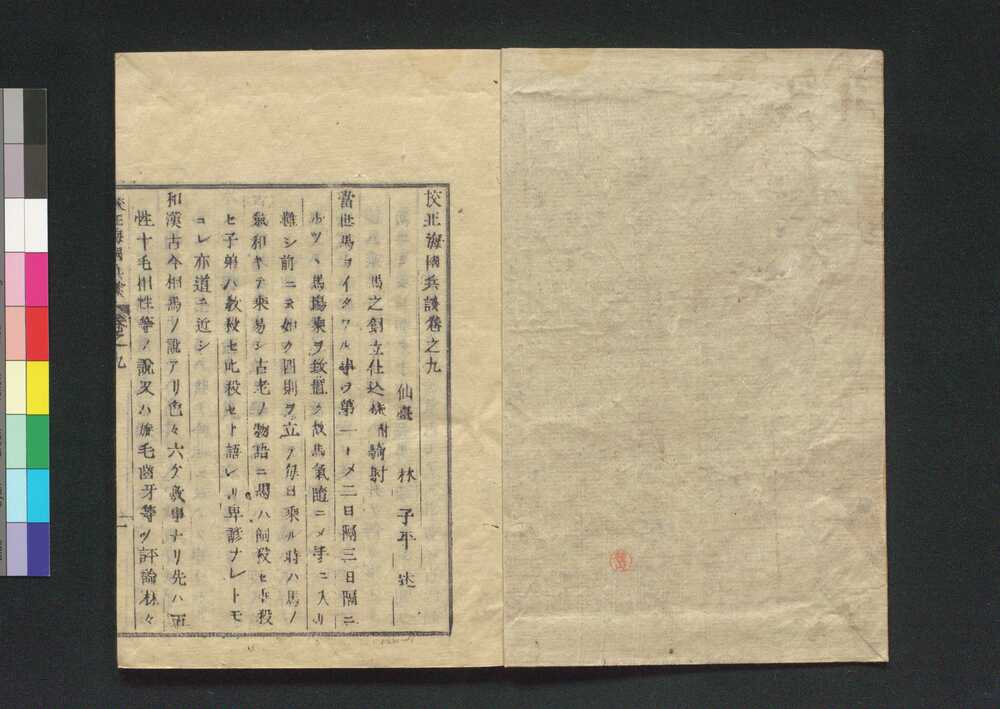 校正海國兵談卷之九
仙臺 林子平 述
馬之創立仕込様附騎射
當世馬ヲイタワル事ヲ第一トメ二日隔三日隔ニ
ツヽ馬場乘ヲ致置ク故馬氣隨ニメ手ニ入リ
難シ前ニ云如ク四則ヲ立テ毎日乘ル時ハ馬ノ
氣和キテ乘易シ古老ノ物語ニ馬ハ飼殺セ乘殺
セ子弟ハ教殺セ此殺セト語レリ卑諺ナレトモ
コレ亦道ニ近シ
和漢古今相馬ノ説アリ色々六ケ敷事ナリ先ハ五
性十毛相性等ノ説又ハ旋毛齒牙等ノ評論林々
校正海國兵談 卷之九 一